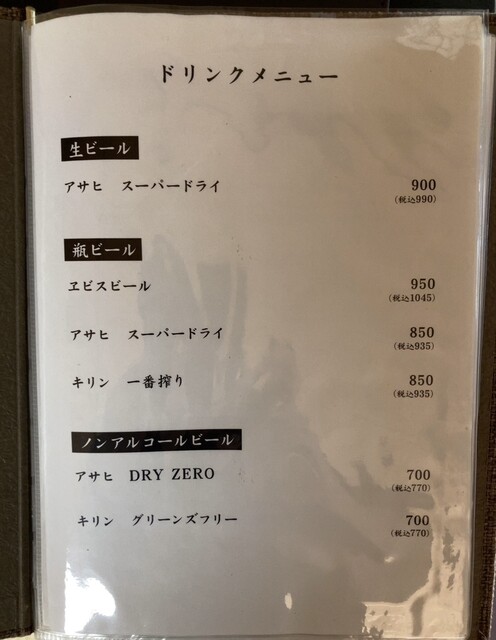 ドリンクメニュー
生ビール
アサヒ スーパードライ 900
(税込990)
瓶ビール
ヱビスビール 950
(税込1045)
アサヒ スーパードライ 850
(税込935)
キリン 一番搾り 850
(税込935)
ノンアルコールビール
アサヒ DRY ZERO 700
(税込770)
キリン グリーンズフリー 700
(税込770)